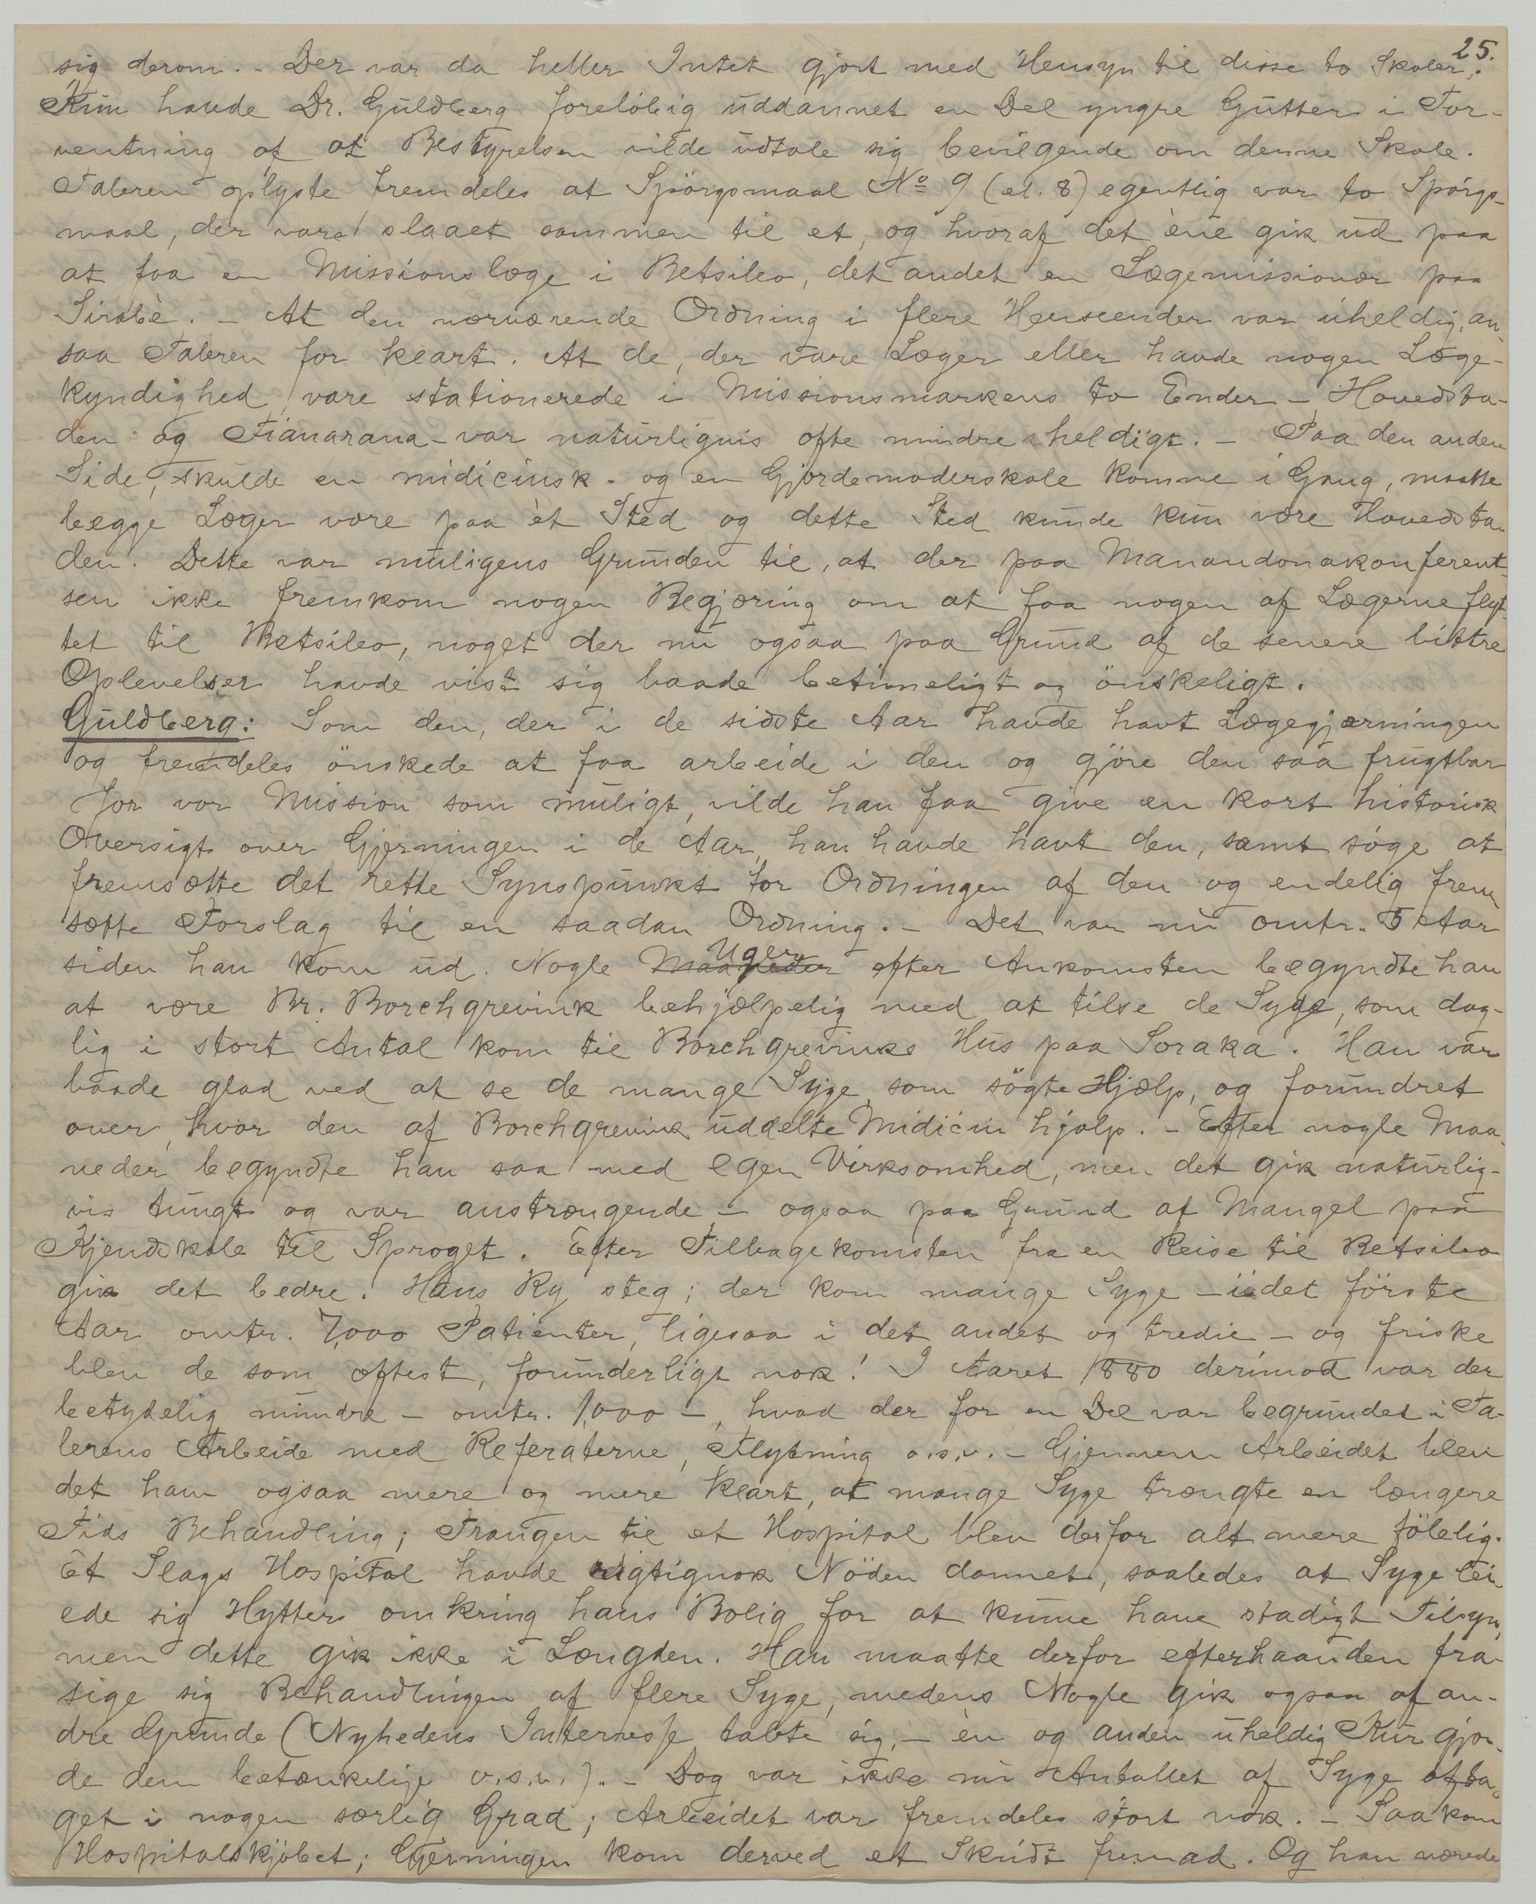 25.
sig derom. - Der var da heller Intet gjort med Hensyn til disse to Skoler.
Kun havde Dr. Guldberg foreløbig uddannet en Del yngre Gutter i For-
ventning af at Bestyrelsen vilde udtale sig bevilgende om denne Skole.
Taleren oplyste fremdeles at Spørgsmaal No 9 (el. 8) egentlig var to Spørgs-
maal, der vare slaaet sammen til et, og hvoraf det ène gik ud paa
at faa en Missionslæge i Betsileo, det andet en Lægemissionær paa
Sirabè. - At den nærværende Ordning i flere Henseender var uheldig, an-
saa Taleren for klart. At de, der vare Læger eller havde nogen Læge-
kyndighed vare stationerede i Missionsmarkens to Ender - Hovedsta-
den og Fianarana - var naturligvis ofte mindre heldigt. - Paa den anden
Side, skulde en midicinsk- og en Gjordemoderskole komme i Gang, maatte
begge Læger være paa èt Sted og dette Sted kunde kun være Hovedsta-
den. Dette var muligens Grunden til, at der paa Manandonakonferent-
sen ikke fremkom nogen Begjæring om at faa nogen af Lægerne flyt-
tet til Betsileo, noget der nu ogsaa paa Grund af de senere bittre
Oplevelser havde vist sig baade betimeligt og ønskeligt.
Guldberg: Som den, der i de sidste Aar havde havt Lægegjærningen
og fremdeles ønskede at faa arbeide i den og gjøre den saa frugtbar
for vor Mission som muligt, vilde han faa give en kort historisk
Oversigt over Gjerningen i de Aar, han havde havt den, samt søge at
fremsætte det rette Synspunkt for Ordningen af den og endelig frem-
sætte Forslag til en saadan Ordning. - Det var nu omtr. 5 Aar
siden han kom ud. Nogle Maaneder Uger efter Ankomsten begyndte han
at være Br. Borchgrevink behjælpelig med at tilse de Syge, som dag-
lig i stort Antal kom til Borchgrevinks Hus paa Soraka. Han var
baade glad ved at se de mange Syge, som søgte Hjælp, og forundret
over, hvor den af Borchgrevink uddelte Midicin hjalp. - Efter nogle Maa-
neder begyndte han saa med egen Virksomhed, men det gik naturlig-
vis tungt og var anstrængende - ogsaa paa Grund af Mangel paa
Kjendskab til Sproget. Efter Tilbagekomsten fra en Reise til Betsileo
gik det bedre. Hans Ry steg; der kom mange Syge - i det første
Aar omtr. 7,000 Patienter, ligesaa i det andet og tredie - og friske
blev de som oftest, forunderligt nok! I Aaret 1880 derimod var der
betydelig mindre - omtr. 1,000 -, hvad der for en Del var begrundet i Ta-
lerens Arbeide med Referaterne, Flytning o.s.v. - Gjennem Arbeidet blev
det ham ogsaa mere og mere klart, at mange Syge trængte en længere
Tids Behandling; Trangen til et Hospital blev derfor alt mere følelig.
Et Slags Hospital havde rigtignok Nøden dannet, saaledes at Syge lei-
ede sig Hytter omkring hans Bolig for at kunne have stadigt Tilsyn,
men dette gik ikke i Længden. Han maatte derfor efterhaanden fra-
sige sig Behandlingen af flere Syge, medens Nogle gik ogsaa af an-
dre Grunde (Nyhedens Interesse tabte sig, - èn og anden uheldig Kur gjor-
de dem betænkelige o.s.v.). - Dog var ikke nu Antallet af Syge afta-
get i nogen særlig Grad; Arbeidet var fremdeles stort nok. - Saa kom
Hospitalskjøbet; Gjerningen kom derved et Skridt fremad. Og han nærede